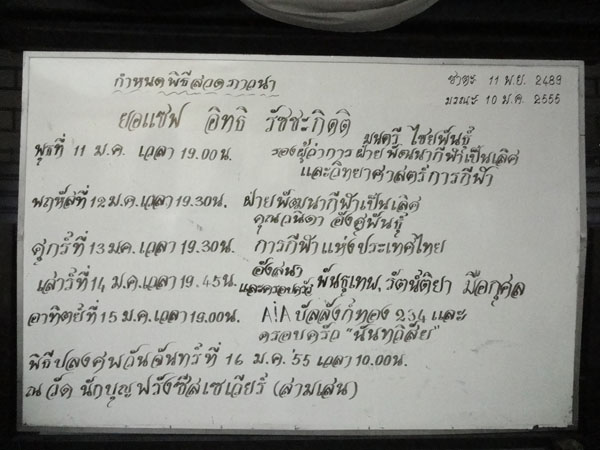 กำหนดพิธีสวดภาวนา
ชาตะ 11 พ.ย. 2489
มรณะ 10 ม.ค. 2555
ยอแซฟ อิทธิ รัชชะกิตติ
พุธที่ 11 ม.ค. เวลา 19.00น. มนตรี ไชยพันธุ์
รองผู้ว่าการ ฝ่ายพัฒนากีฬาเป็นเลิศ
และวิทยาศาสตร์การกีฬา
พฤหัสที่ 12 ม.ค. เวลา 19.30น. ฝ่ายพัฒนากีฬาเป็นเลิศ
คุณวนิดา อังศุพันธุ์
ศุกร์ที่ 13 มค. เวลา 19.30น. การกีฬาแห่งประเทศไทย
เสาร์ที่ 14 ม.ค. เวลา 19.45น. และครอบครัว พันธุเทพ, รัตน์ติยา มีอกุศล
อาทิตย์ที่ 15 ม.ค. เวลา 19.00น. AIA บัลลังก์ทอง 234 และ
ครอบครัว "นันทภิสัย"
พิธีปลงศพวันจันทร์ที่ 16 ม.ค. '55 เวลา 10.00น.
ณ วัด นักบุญฟรังซีสเซเวียร์ (สามเสน)